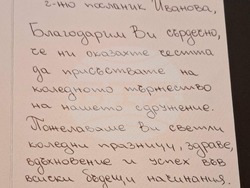 г-жо посланик Иванова,
Благодарим Ви сърдечно,
че ни оказахте честта
да присъствате на
коледното тържество
на нашето сдружение.
Пожелаваме Ви светли
коледни празници, здраве,
вдъхновение и успех във
всички бъдещи начинания.